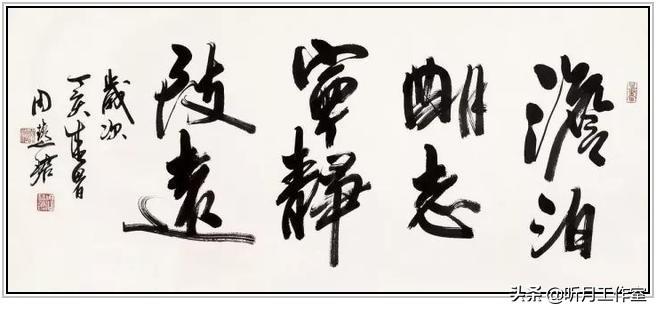 澹泊
明志
寧靜
致遠
歲次
丁亥
周慧珺
头条 @听月工作室